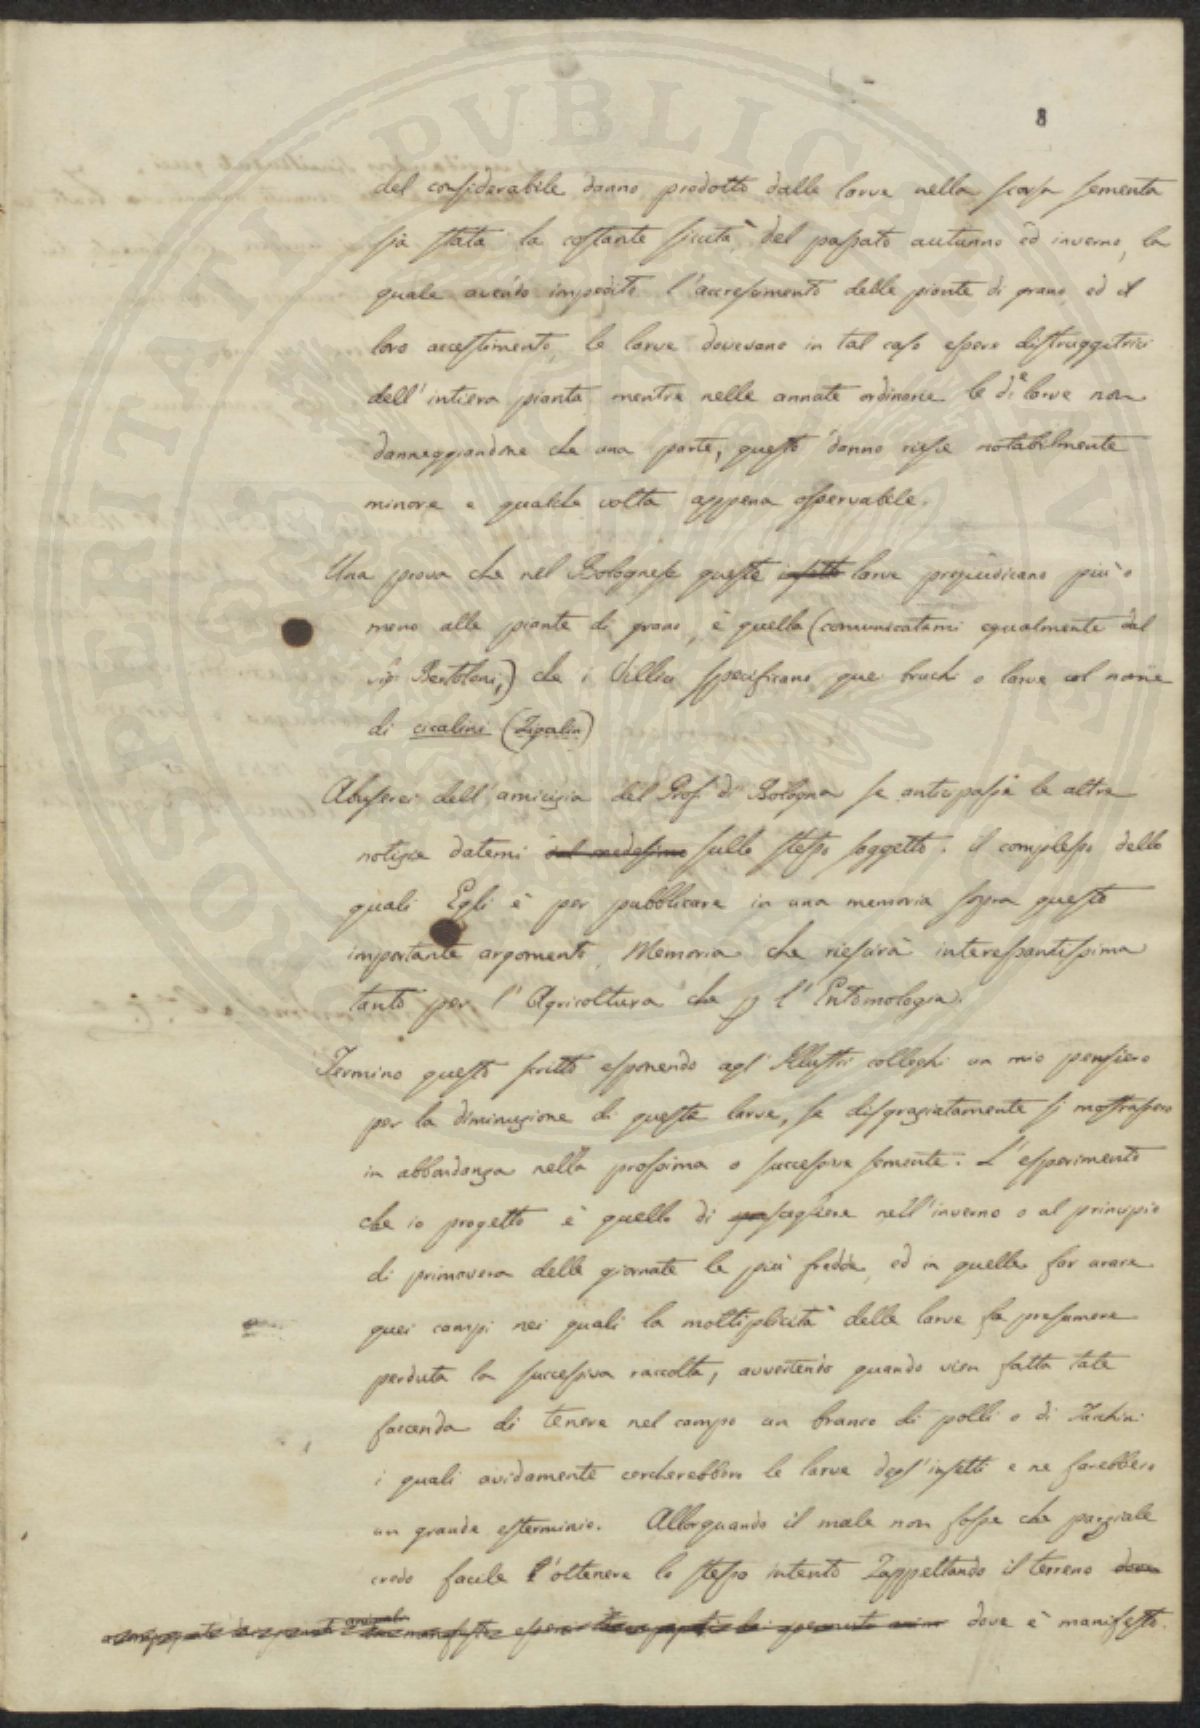 8
del considerabile danno prodotto dalle larve nella scorsa sementa
sia stata la costante siccità del passato autunno ed inverno, la
quale avendo impedito l'accrescimento delle piante di grano ed il
loro accestimento, le larve dovevano in tal caso essere distruggitrici
dell'intiera pianta mentre nelle annate ordinarie le de larve non
danneggiandone che una parte, questo danno riesce notabilmente
minore e qualche volta appena osservabile.
Una prova che nel Bolognese queste insetti larve pregiudicano più o
meno alle piante di grano, è quella (comunicatami egualmente dal
sig. Bertoloni,) che i Villici specificano quei bruchi o larve col nome
di cicalini (Zigalin)
Abuserei dell'amicizia del Prof. di Bologna se anticipassi le altre
notizie datemi dal medesimo sullo stesso soggetto. il complesso delle
quali Egli è per pubblicare in una memoria sopra questo
importante argomento, Memoria che riescirà interessantissima
tanto per l'Agricoltura che p l'Entomologia.
Termino questo scritto esponendo agl'Illustri colleghi un mio pensiero
per la diminuzione di queste larve, se disgraziatamente si mostrassero
in abbondanza nella prossima o successive semente. L'esperimento
che io progetto è quello di scegliere nell'inverno o al principio
di primavera delle giornate le più fredde, ed in quelle far arare
quei campi nei quali la moltiplicità delle larve fa presumere
perduta la successiva raccolta, avvertendo quando vien fatta tale
faccenda di tenere nel campo un branco di polli o di Tacchini
i quali avidamente cercherebbero le larve degl'insetti e ne farebbero
un grande esterminio. Allorquando il male non fosse che parziale
credo facile l'ottenere lo stesso intento Zappettando il terreno dove
dove è manifesto.